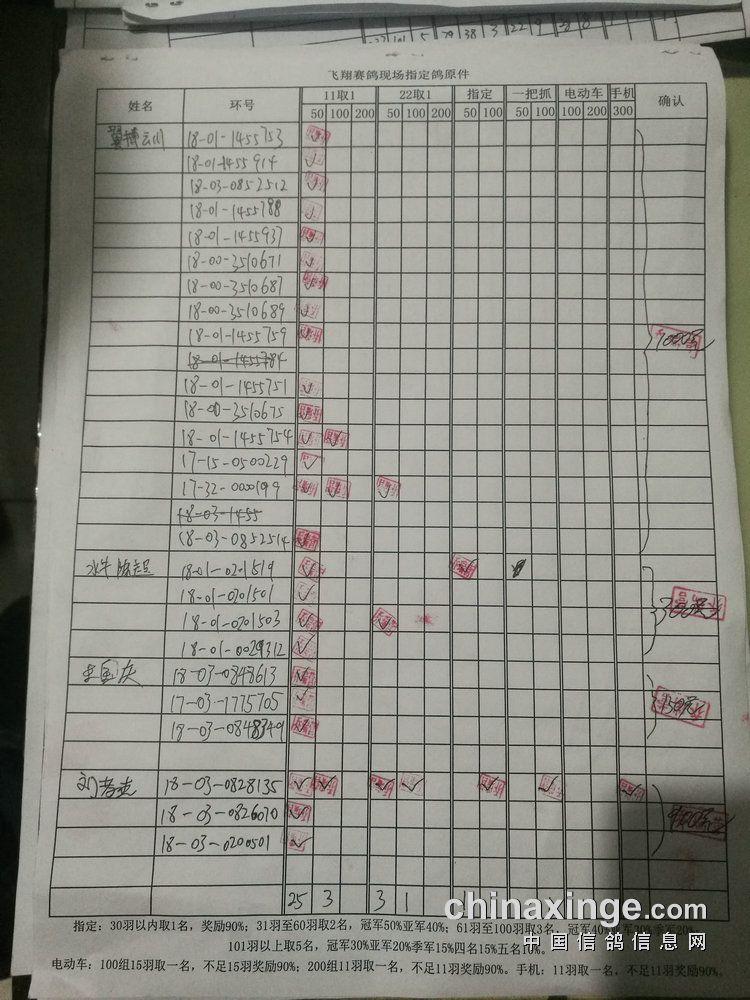 飞翔赛鸽现场指定鸽原件
姓名 环号 11取1 22取1 指定 一把抓 电动车 手机 确认
50 100 200 50 100 200 50 100 50 100 100 200 300
翼搏云川 18-01-1455753
18-01-1455914
18-03-0852512
18-01-1455788
18-01-1455937
18-00-3510671
18-00-3510687
18-00-3510689
18-01-1455759
18-01-1455784
18-01-1455751
18-00-3510675
18-01-1455754
17-15-0500229
17-32-0000199
18-03-1455
18-03-0852514
18-01-0201519
18-01-0201501
18-01-0201503
18-01-0029312
李国庆 18-03-0848613
17-03-1775705
18-03-0848349
18-03-0828135
18-03-0826070
18-03-0200501
25 3 3 1
指定：30羽以内取1名，奖励90%；31羽至60羽取2名，冠军50%亚军40%；61羽至100羽取3名，冠军40%亚军30%季军20%
101羽以上取5名，冠军30%亚军20%季军15%四名15%五名10%。
电动车：100组15羽取一名，不足15羽奖励90%；200组11羽取一名，不足11羽奖励90%。手机：11羽取一名，不足11羽奖励90%。
chinaxinge.com
中国信鸽信息网